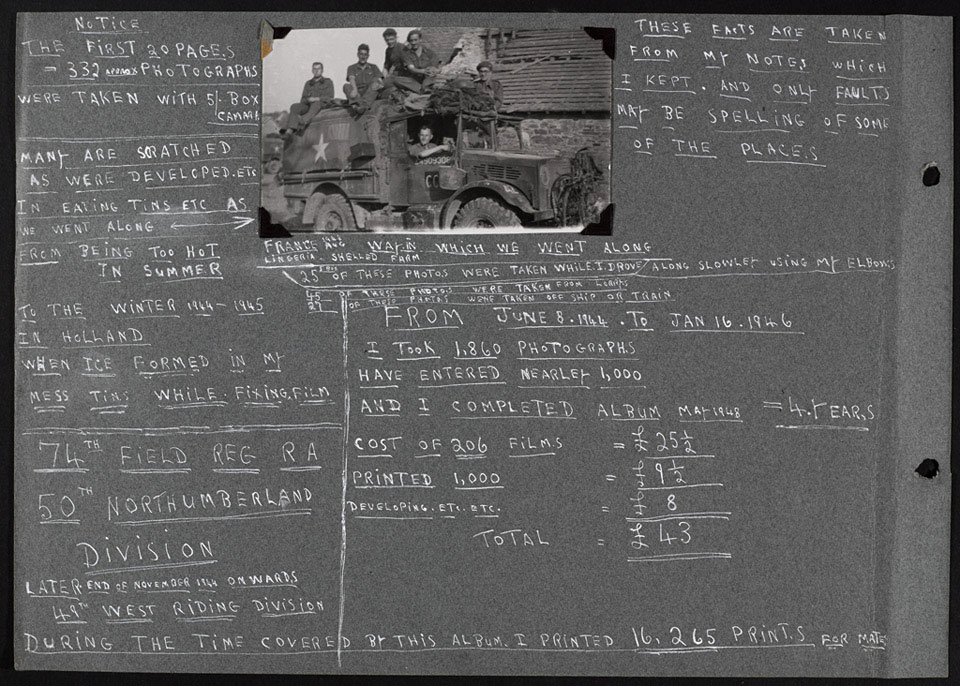 NOTICE
THE FIRST 20 PAGES
= 332 APPROX PHOTOGRAPHS
WERE TAKEN WITH 5/- BOX
CAMARA
MANY ARE SCRATCHED
AS WERE DEVELOPED. ETC
IN EATING TINS ETC AS
WE WENT ALONG
FROM BEING TOO HOT
IN SUMMER
TO THE WINTER 1944-1945
IN HOLLAND
WHEN ICE FORMED IN MY
MESS TINS WHILE. FIXING. FILM
74TH FIELD REG RA
50TH NORTHUMBERLAND
DIVISION
LATER. END OF NOVEMBER 1944 ONWARDS
49TH WEST RIDING DIVISION
THESE FACTS ARE TAKEN
FROM MY NOTES WHICH
I KEPT. AND ONLY FAULTS
MAY BE SPELLING OF SOME
OF THE PLACES
FRANCE 1944 AUG WAY IN WHICH WE WENT ALONG
LINGERIA. SHELLED FARM
25 OF THESE PHOTOS WERE TAKEN WHILE. I. DROVE ALONG SLOWLEY USING MY ELBOWS
45 OF THESE PHOTOS WERE TAKEN FROM LORRYS
25 OF THESE PHOTOS WERE TAKEN OFF SHIP OR TRAIN
FROM JUNE 8. 1944. TO JAN 16. 1946
I TOOK 1,860 PHOTOGRAPHS
HAVE ENTERED NEARLEY 1,000
AND I COMPLETED ALBUM MAY 1948 = 4. YEARS
COST OF 206 FILMS = £ 25½
PRINTED 1,000 = £ 9½
DEVELOPING. ETC. ETC. = £ 8
TOTAL = £ 43
DURING THE TIME COVERED BY THIS ALBUM. I PRINTED 16,265 PRINTS FOR MATES